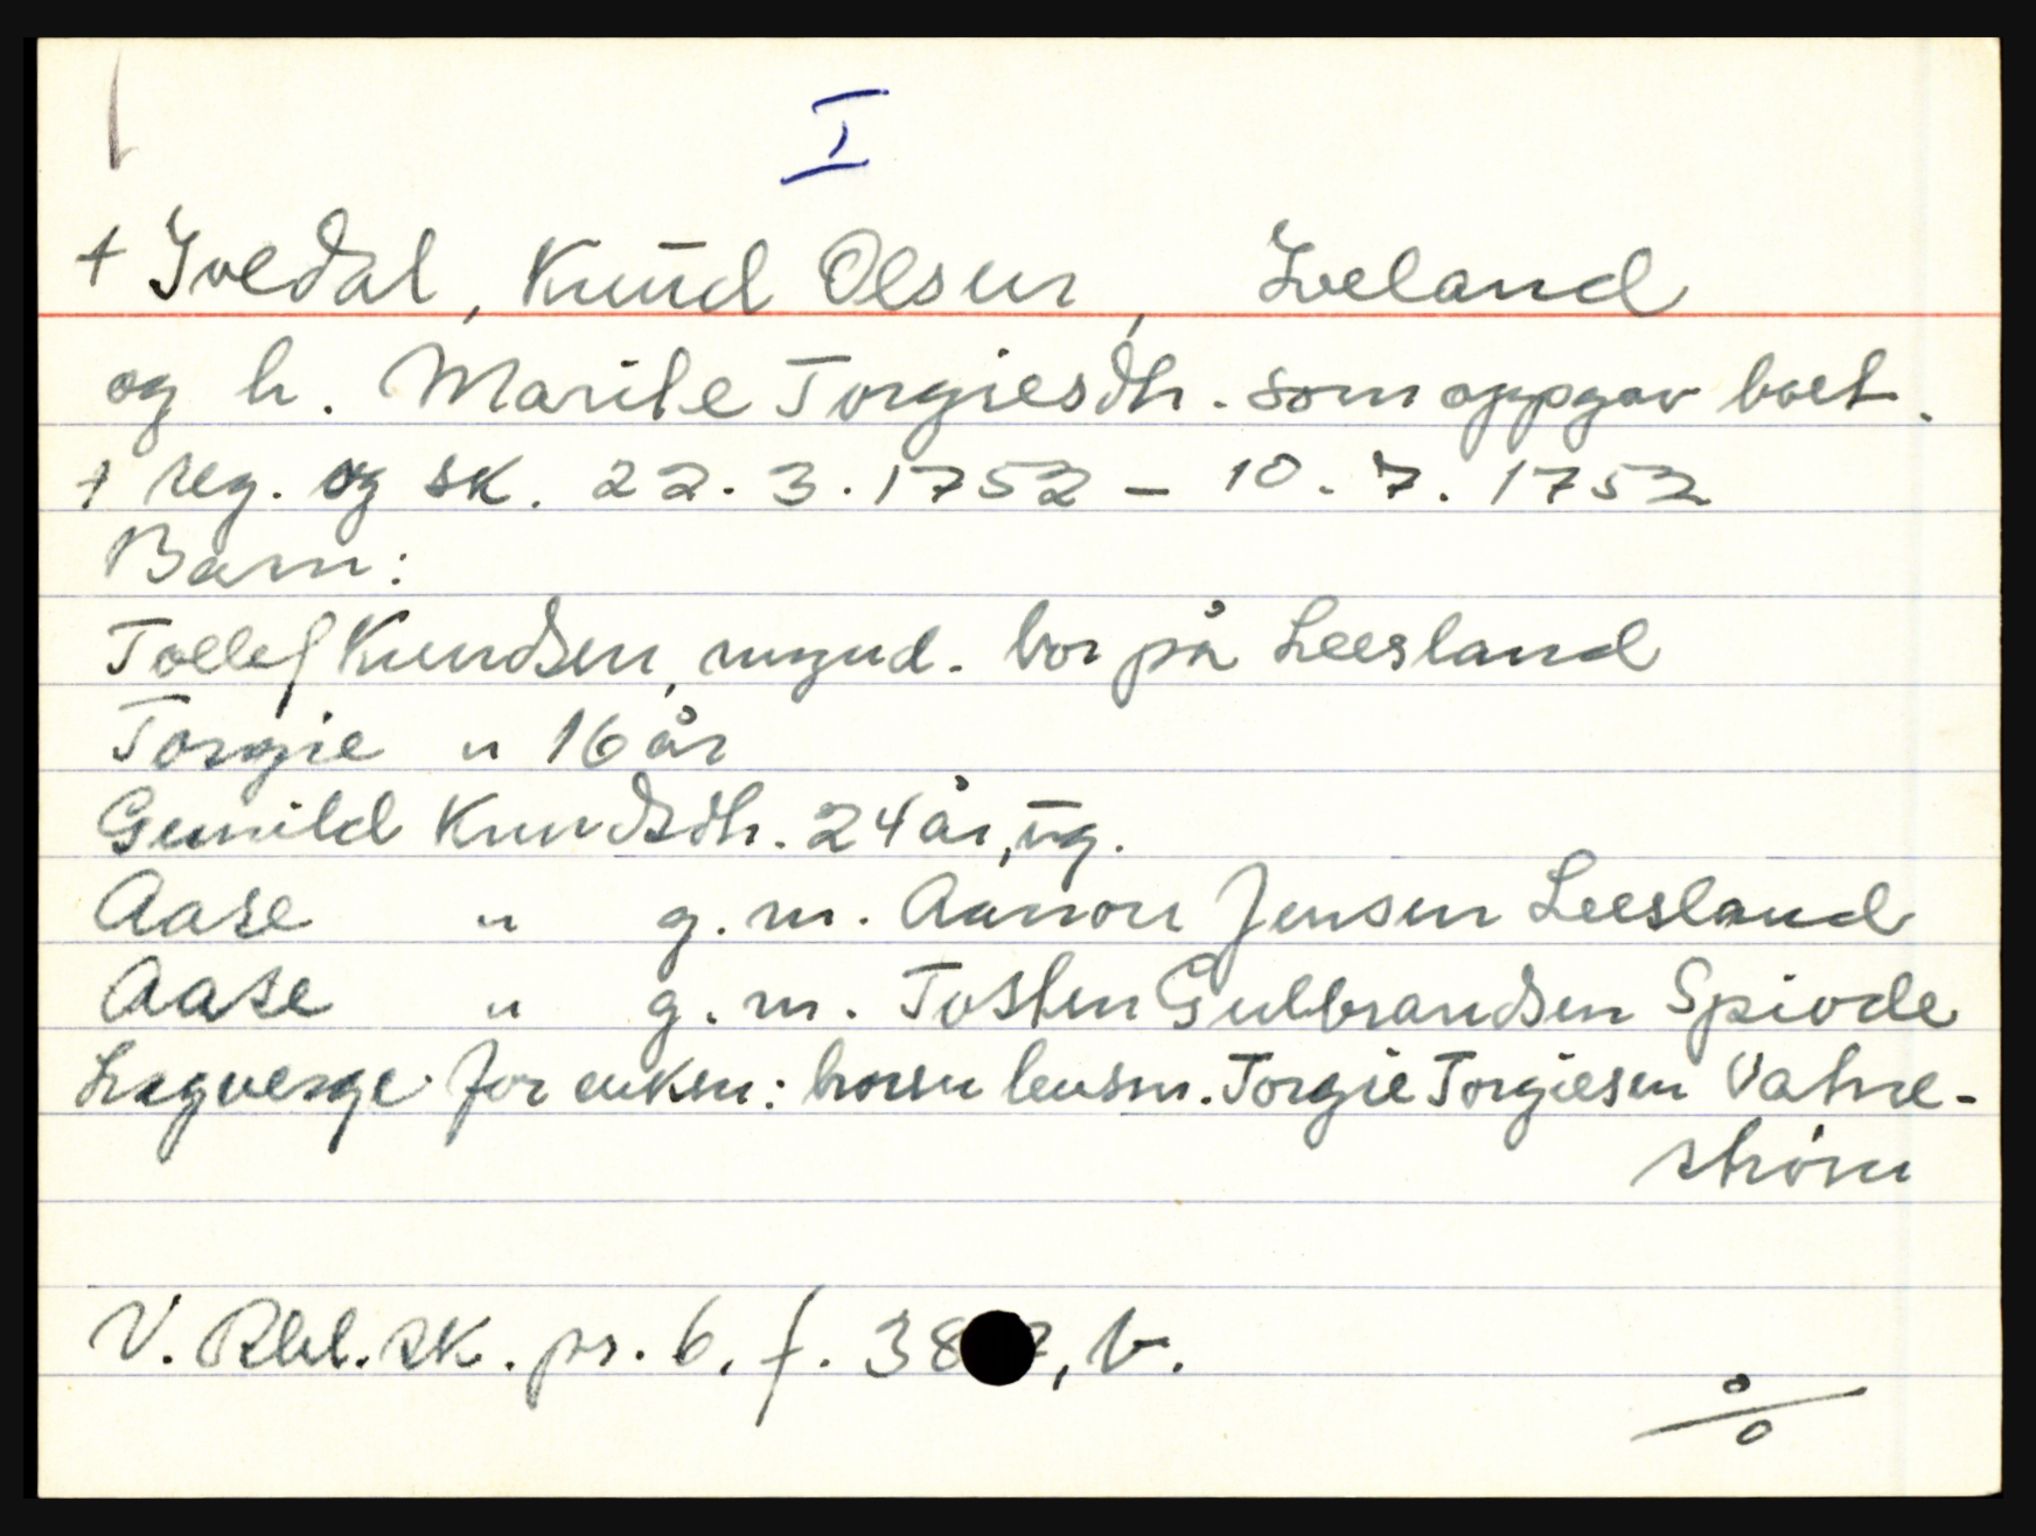 I
+ Ivedal, Knud Olsen, Iveland
og h. Marite Torgiesdtr. som oppgav boet.
+ reg. og sk. 22.3.1752 - 10.7.1752
Barn:
Tollef Kundsen, mynd. bor på Leesland
Torgie " 16 år
Gunild Knudsdtr. 24 år, ug.
Aase " g.m. Aanon Jensen Leesland
Aase " g.m. Tosten Gulbrandsen Spiode
Lagverge for enken: broren lensm. Torgie Torgiesen Vatne-
strøm
V. Rbl. sk. pr. 6. f. 38 7, b.